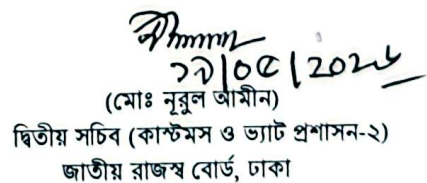 ১৯/০৫/২০২৬
(মোঃ নূরুল আমীন)
দ্বিতীয় সচিব (কাস্টমস ও ভ্যাট প্রশাসন-২)
জাতীয় রাজস্ব বোর্ড, ঢাকা